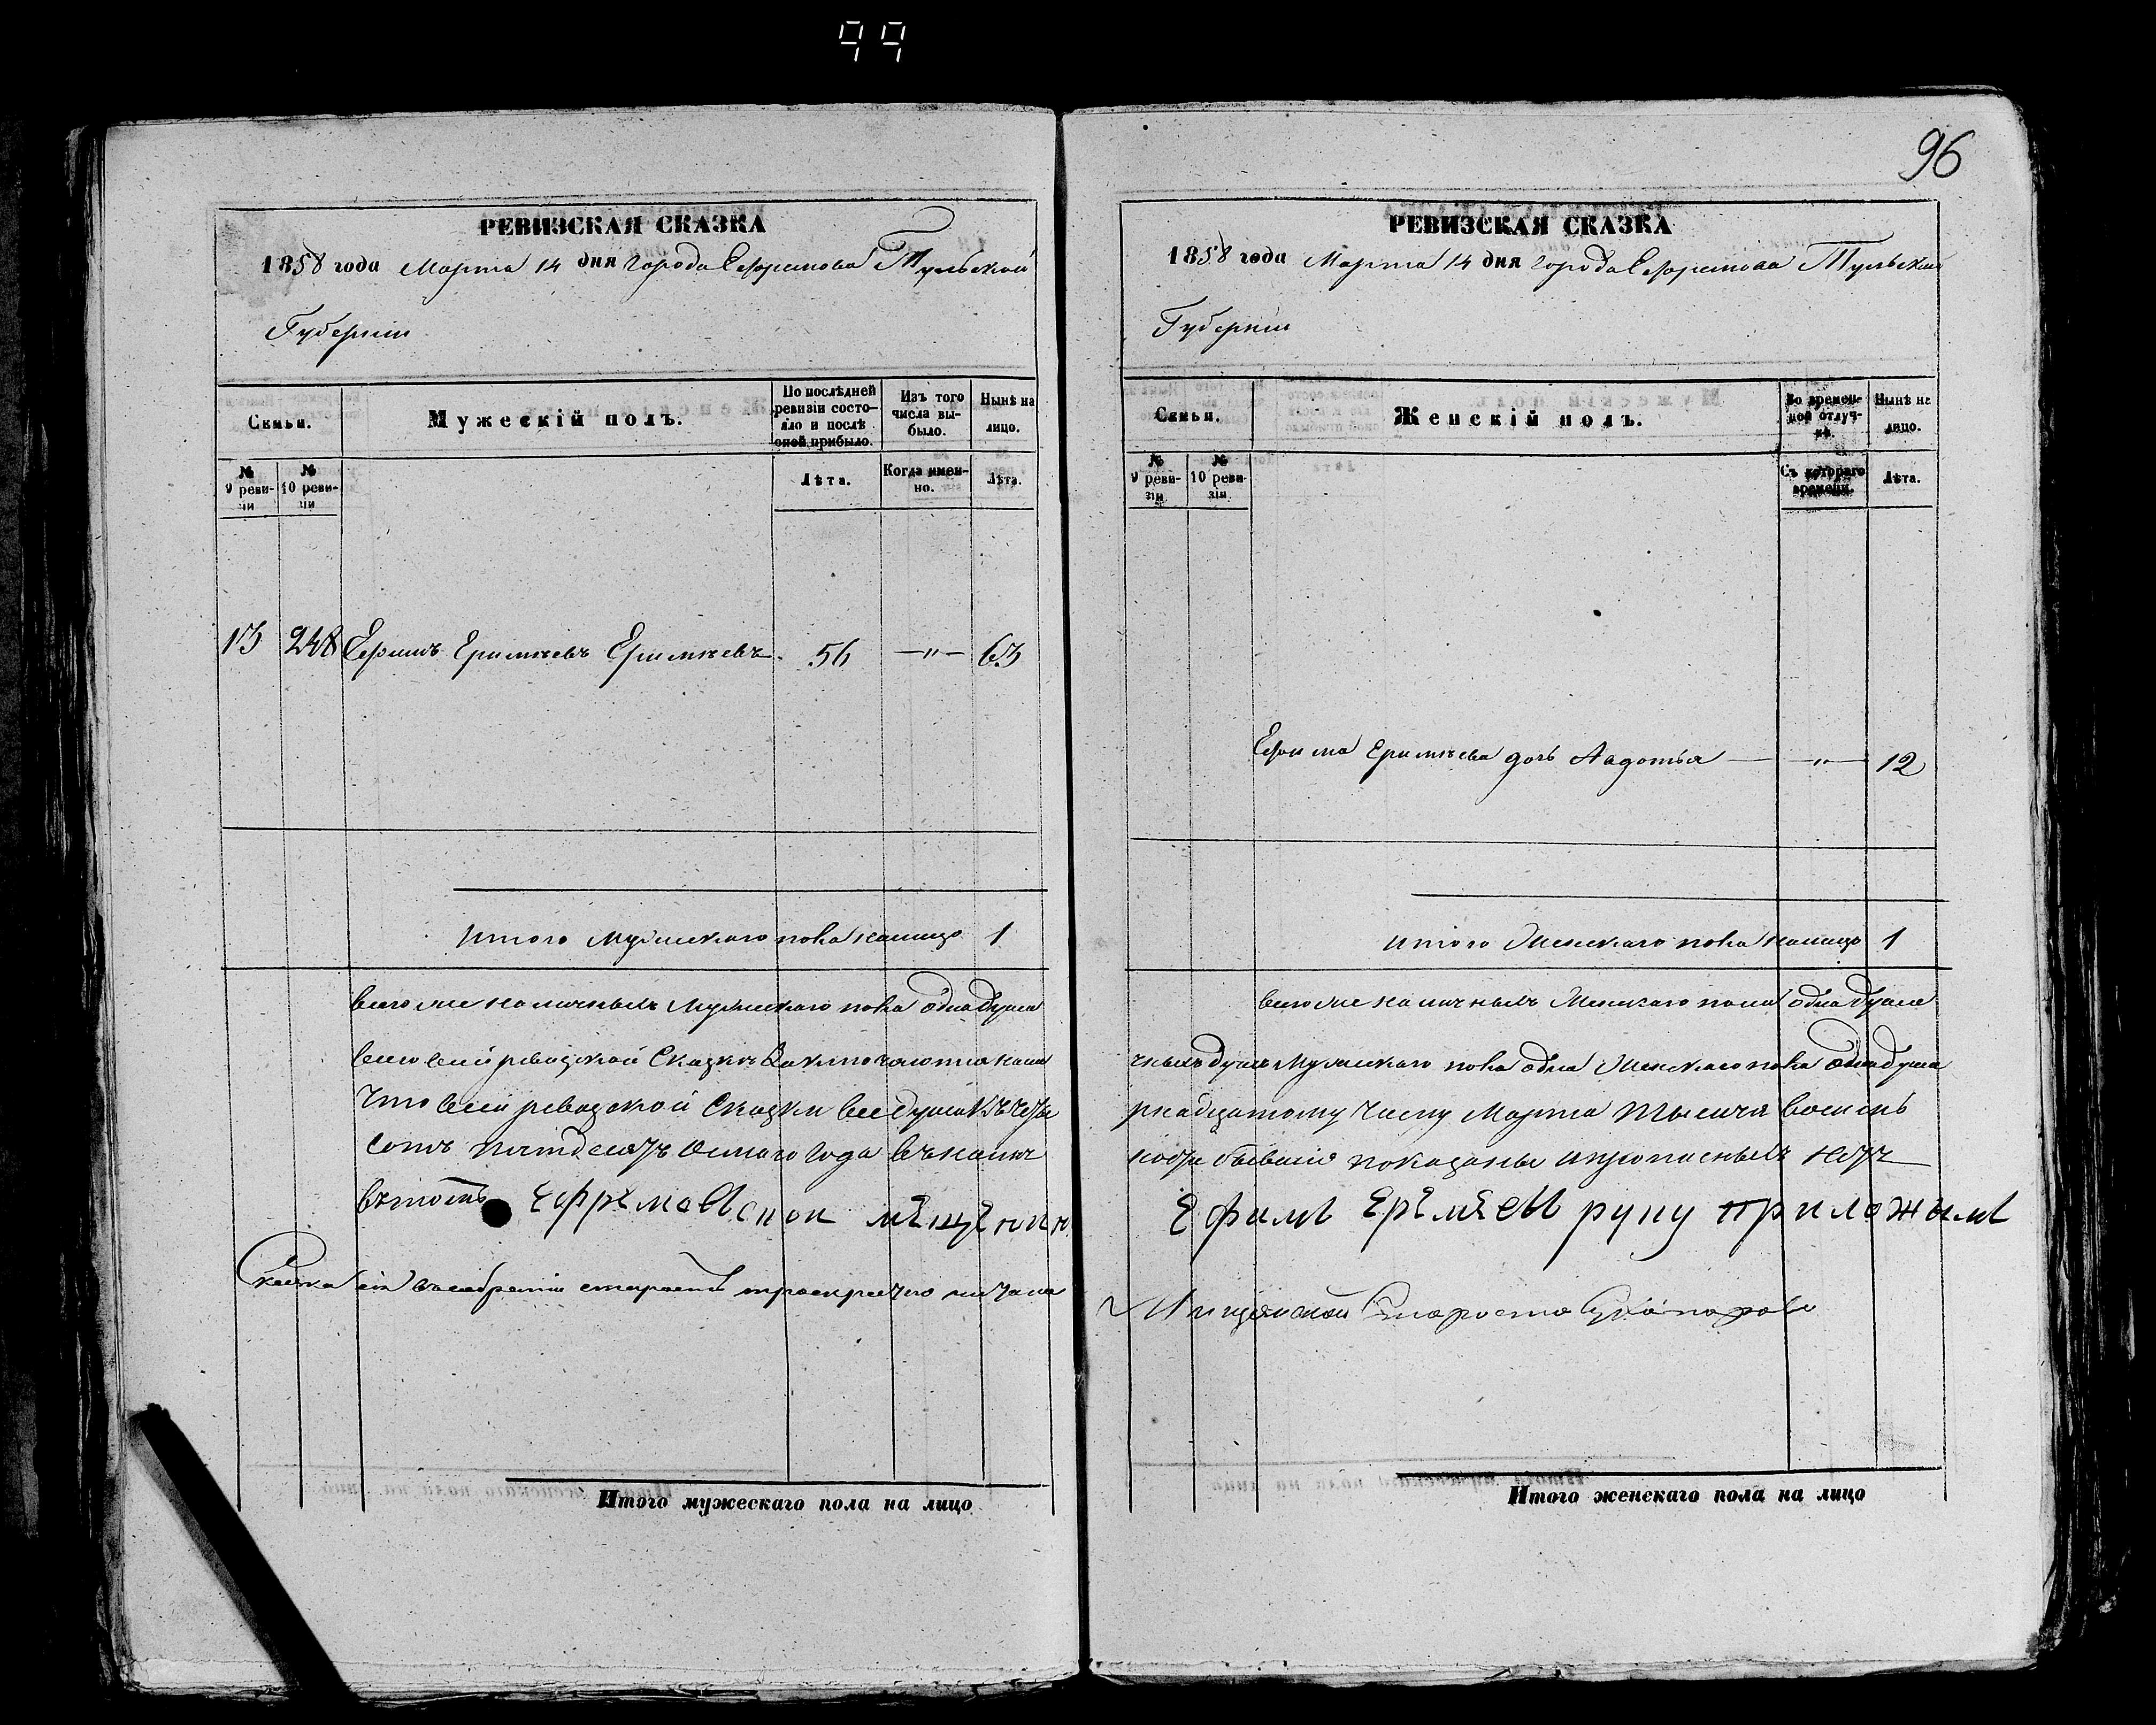 99
96
РЕВИЗСКАЯ СКАЗКА
1858 года Марта 14 дня города Ефремова Тульской
Губернiи
Семьи.
Мужескiй полъ.
По послѣдней ревизiи состояло и послѣ оной прибыло.
Изъ того числа выбыло.
Нынѣ на лицо.
№ 9 ревизiи
№ 10 ревизiи
Лѣта.
Когда именно.
Лѣта.
13 248 Ефимъ Еримѣевъ Еримѣевъ 56 —"— 63
Итого Мужескаго пола налицо 1
всего же наличныхъ мужескаго пола одна душа
всего всей ревизской Сказкѣ Заключаются нали
Что всей ревизской Сказки все души Къ четы
сотъ пятдесятъ осмаго года въ
въ томъ Ефрѣмовъской мѣщенин
Сказка сiя
Итого мужескаго пола на лицо
РЕВИЗСКАЯ СКАЗКА
1858 года Марта 14 дня города Ефремова Тульской
Губернiи
Семьи.
Женскiй полъ.
Во временной отлучкѣ.
Нынѣ на лицо.
№ 9 ревизiи
№ 10 ревизiи
Съ котораго времени.
Лѣта.
Ефима Еримѣева дочь Авдотья — —"— 12
итого Женскаго пола налицо 1
всего же наличныхъ Женскаго пола одна душа
чныхъ душъ Мужескаго пола одна Женскаго пола одна душа
рнадцатому числу Марта тысяча восемь
показаны нѣтъ
Ефимъ Ерѣмѣевъ руку приложылъ
Мещанской Староста
Итого женскаго пола на лицо